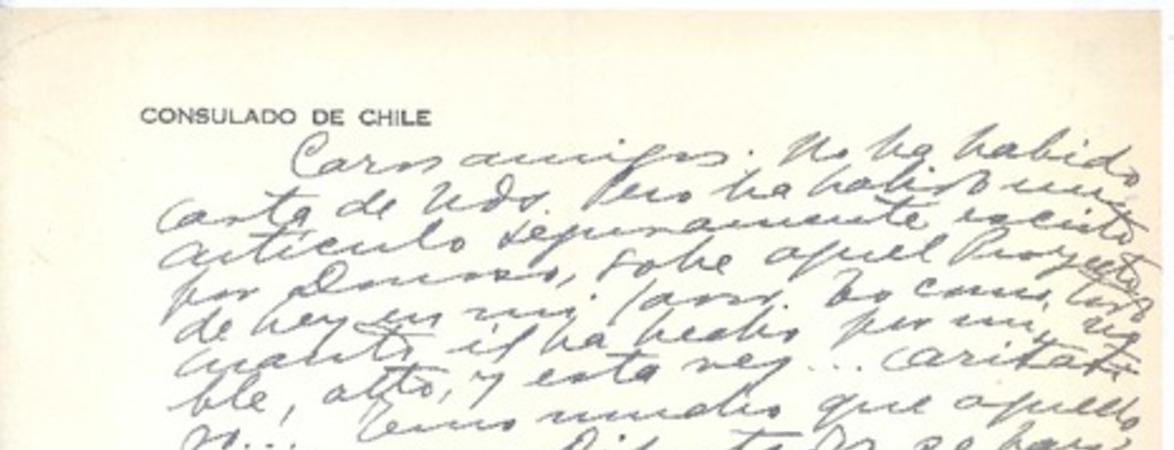 CONSULADO DE CHILE
Caros amigos. No ha habido
carta de Uds. Pero ha habido un
artículo seguramente escrito
por Donoso, sobre aquel Proyecto
de ley en mi favor. Es como todo
cuanto él ha hecho por mí, no
ble, alto, y esta vez... caritati
vo... Temo mucho que aquello
se haga